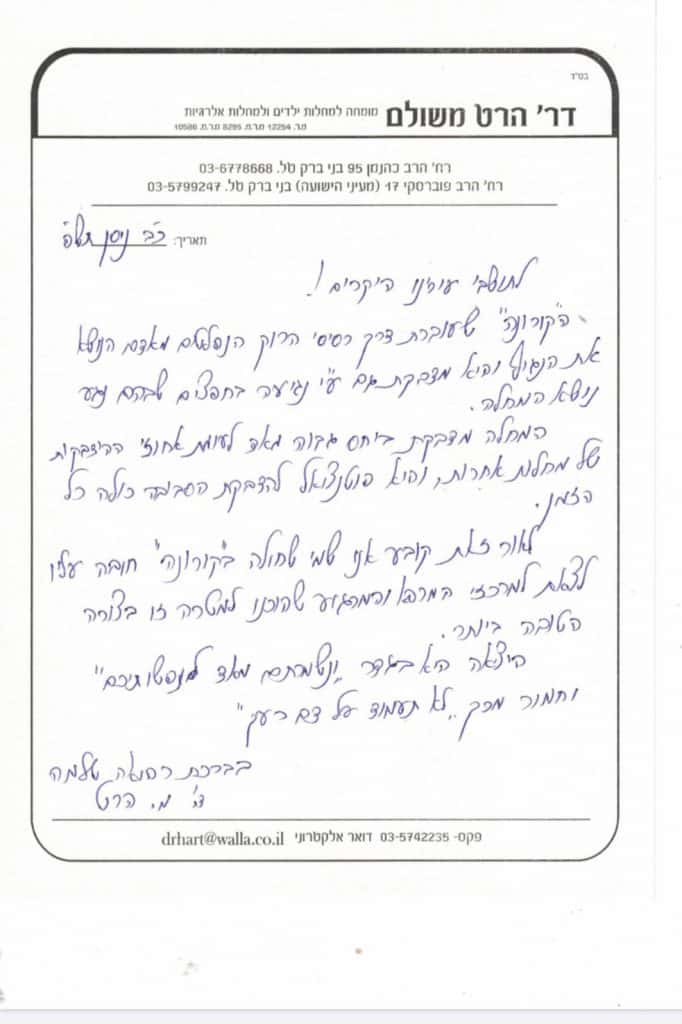 בס"ד
דר' הרט משולם מומחה למחלות ילדים ולמחלות אלרגיות
מ.ר. 12254 מ.ר.מ. 8295 מ.ר.מ. 10586
רח' הרב כהנמן 95 בני ברק טל. 03-6778668
רח' הרב פוברסקי 17 (מעיני הישועה) בני ברק טל. 03-5799247
תאריך: כ"ב ניסן תש"פ
לתושבי עירנו היקרים!
ה"קורונה" שעוברת דרך רסיסי הרוק הנפלטים מאדם הנושא
את הנגיף והיא מדבקת גם ע"י נגיעה בחפצים שבהם נגע
נושא המחלה.
המחלה מדבקת ביחס גבוה מאד לעומת אחוזי ההידבקות
של מחלות אחרות, והיא פוטנציאל להדבקת הסביבה כולה כל
הזמן.
לאור זאת קובע אני שמי שחולה ב"קורונה" חובה עליו
לצאת למרכזי המרפא והמרגוע שהוכנו למטרה זו בצורה
הטובה ביותר.
היציאה היא בגדר "ונשמרתם מאד לנפשותיכם"
וחמור מכך "לא תעמוד על דם רעך"
בברכת רפואה שלמה
ד' מ. הרט
פקס- 03-5742235 דואר אלקטרוני drhart@walla.co.il